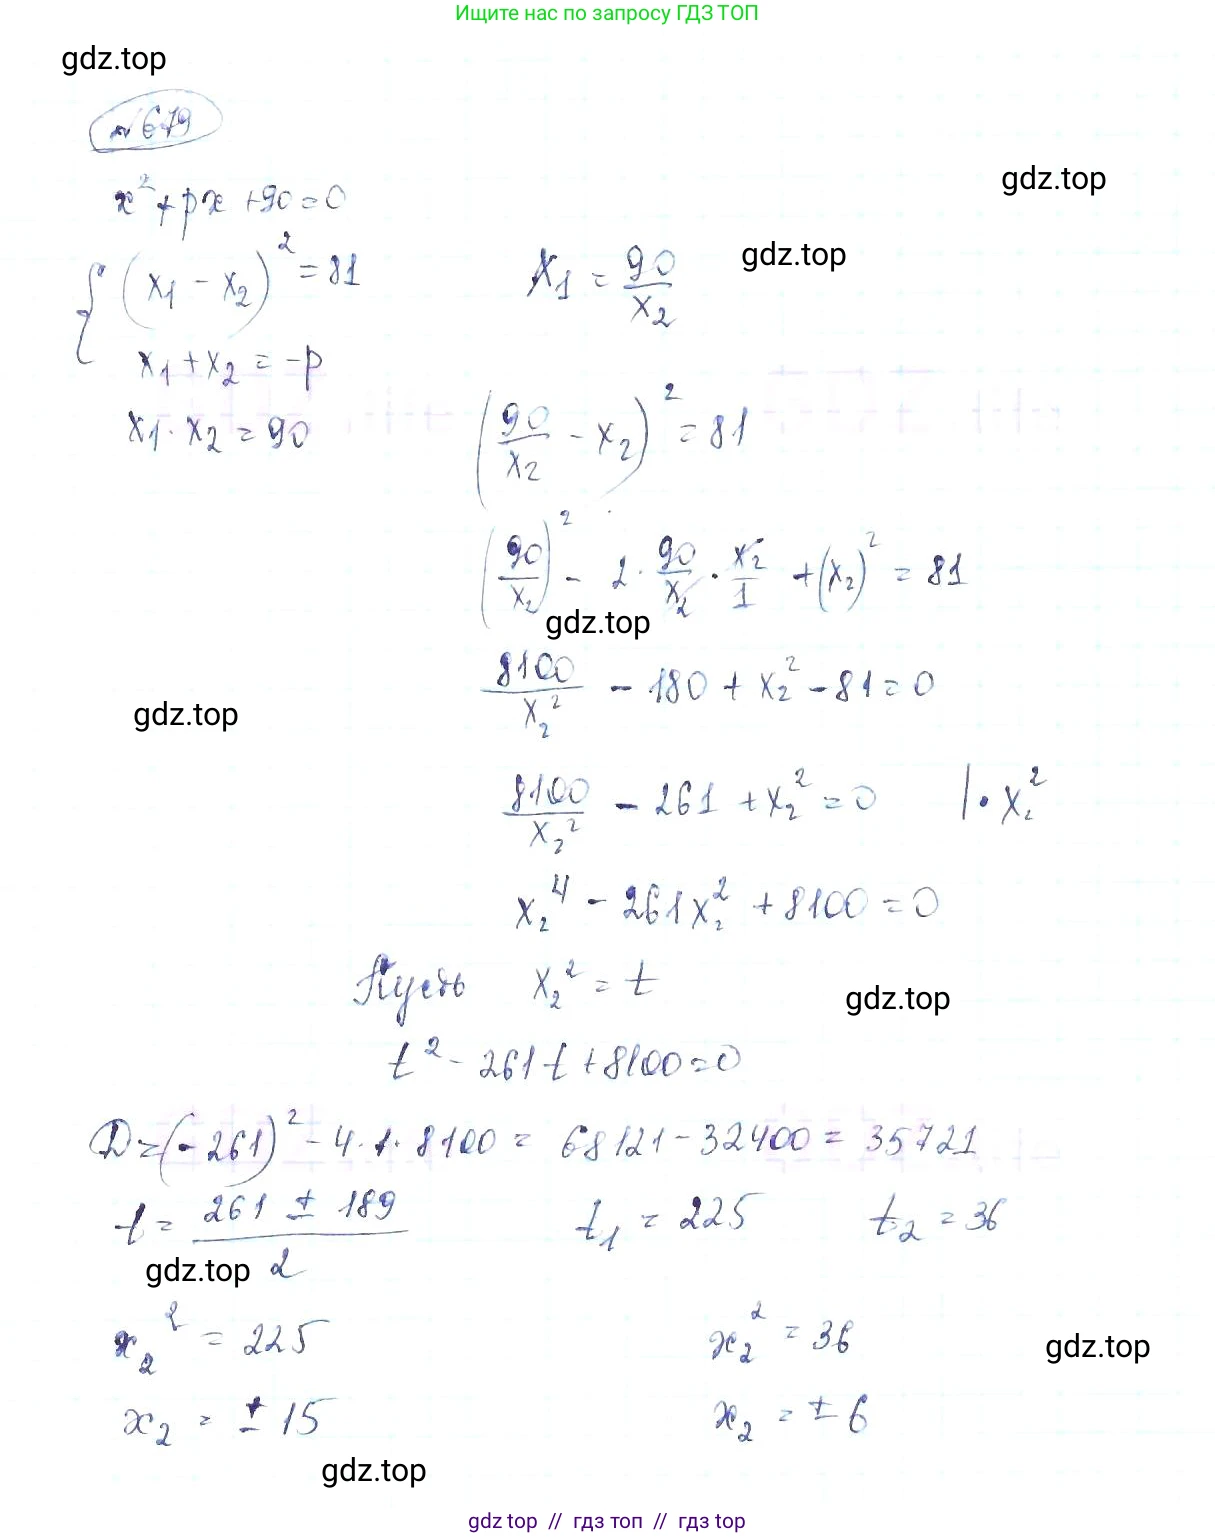 Ищите нас по запросу ГДЗ ТОП
gdz.top
№679
gdz.top
x² + px + 90 = 0
gdz.top
(x₁ - x₂)² = 81
x₁ = 90/x₂
x₁ + x₂ = -p
x₁ · x₂ = 90
(90/x₂ - x₂)² = 81
(90/x₂)² - 2 · 90/x₂ · x₂/1 + (x₂)² = 81
gdz.top
8100/x₂² - 180 + x₂² - 81 = 0
gdz.top
8100/x₂² - 261 + x₂² = 0 | · x₂²
x₂⁴ - 261x₂² + 8100 = 0
Пусть x₂² = t
gdz.top
t² - 261t + 8100 = 0
D = (-261)² - 4 · 1 · 8100 = 68121 - 32400 = 35721
t = (261 ± 189)/2 t₁ = 225 t₂ = 36
gdz.top
x₂² = 225 x₂² = 36
gdz.top
x₂ = ± 15 x₂ = ± 6
gdz.top
gdz top // гдз топ // гдз top